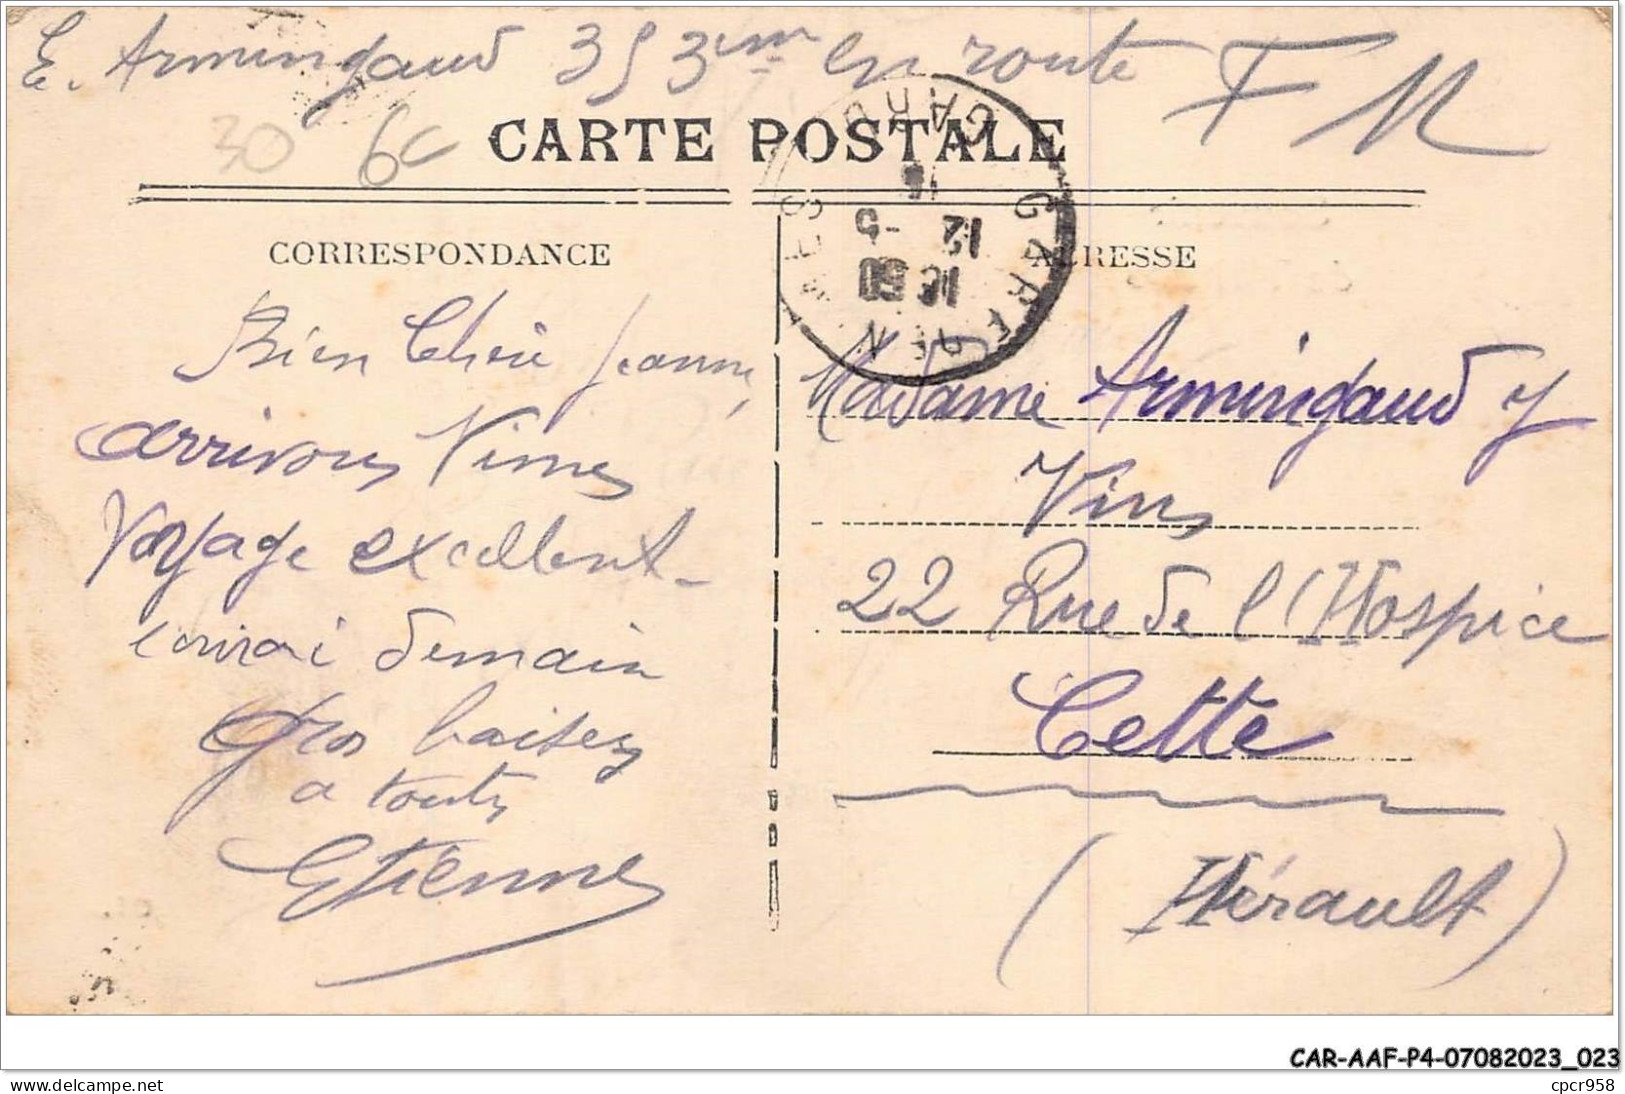 E. Armingaud 353ème en route F M
30 6c
CARTE POSTALE
CORRESPONDANCE
ADRESSE
GARE DE NIMES GARD
12 -5
16
Bien Chère Jeanne,
arrivons Nimes
Voyage excellent -
écrirai demain
Gros baisers
a toutes
Etienne
Madame Armingaud
Vins
22 Rue de l'Hospice
Cette
(Hérault)
CAR-AAF-P4-07082023_023
www.delcampe.net
cpcr958